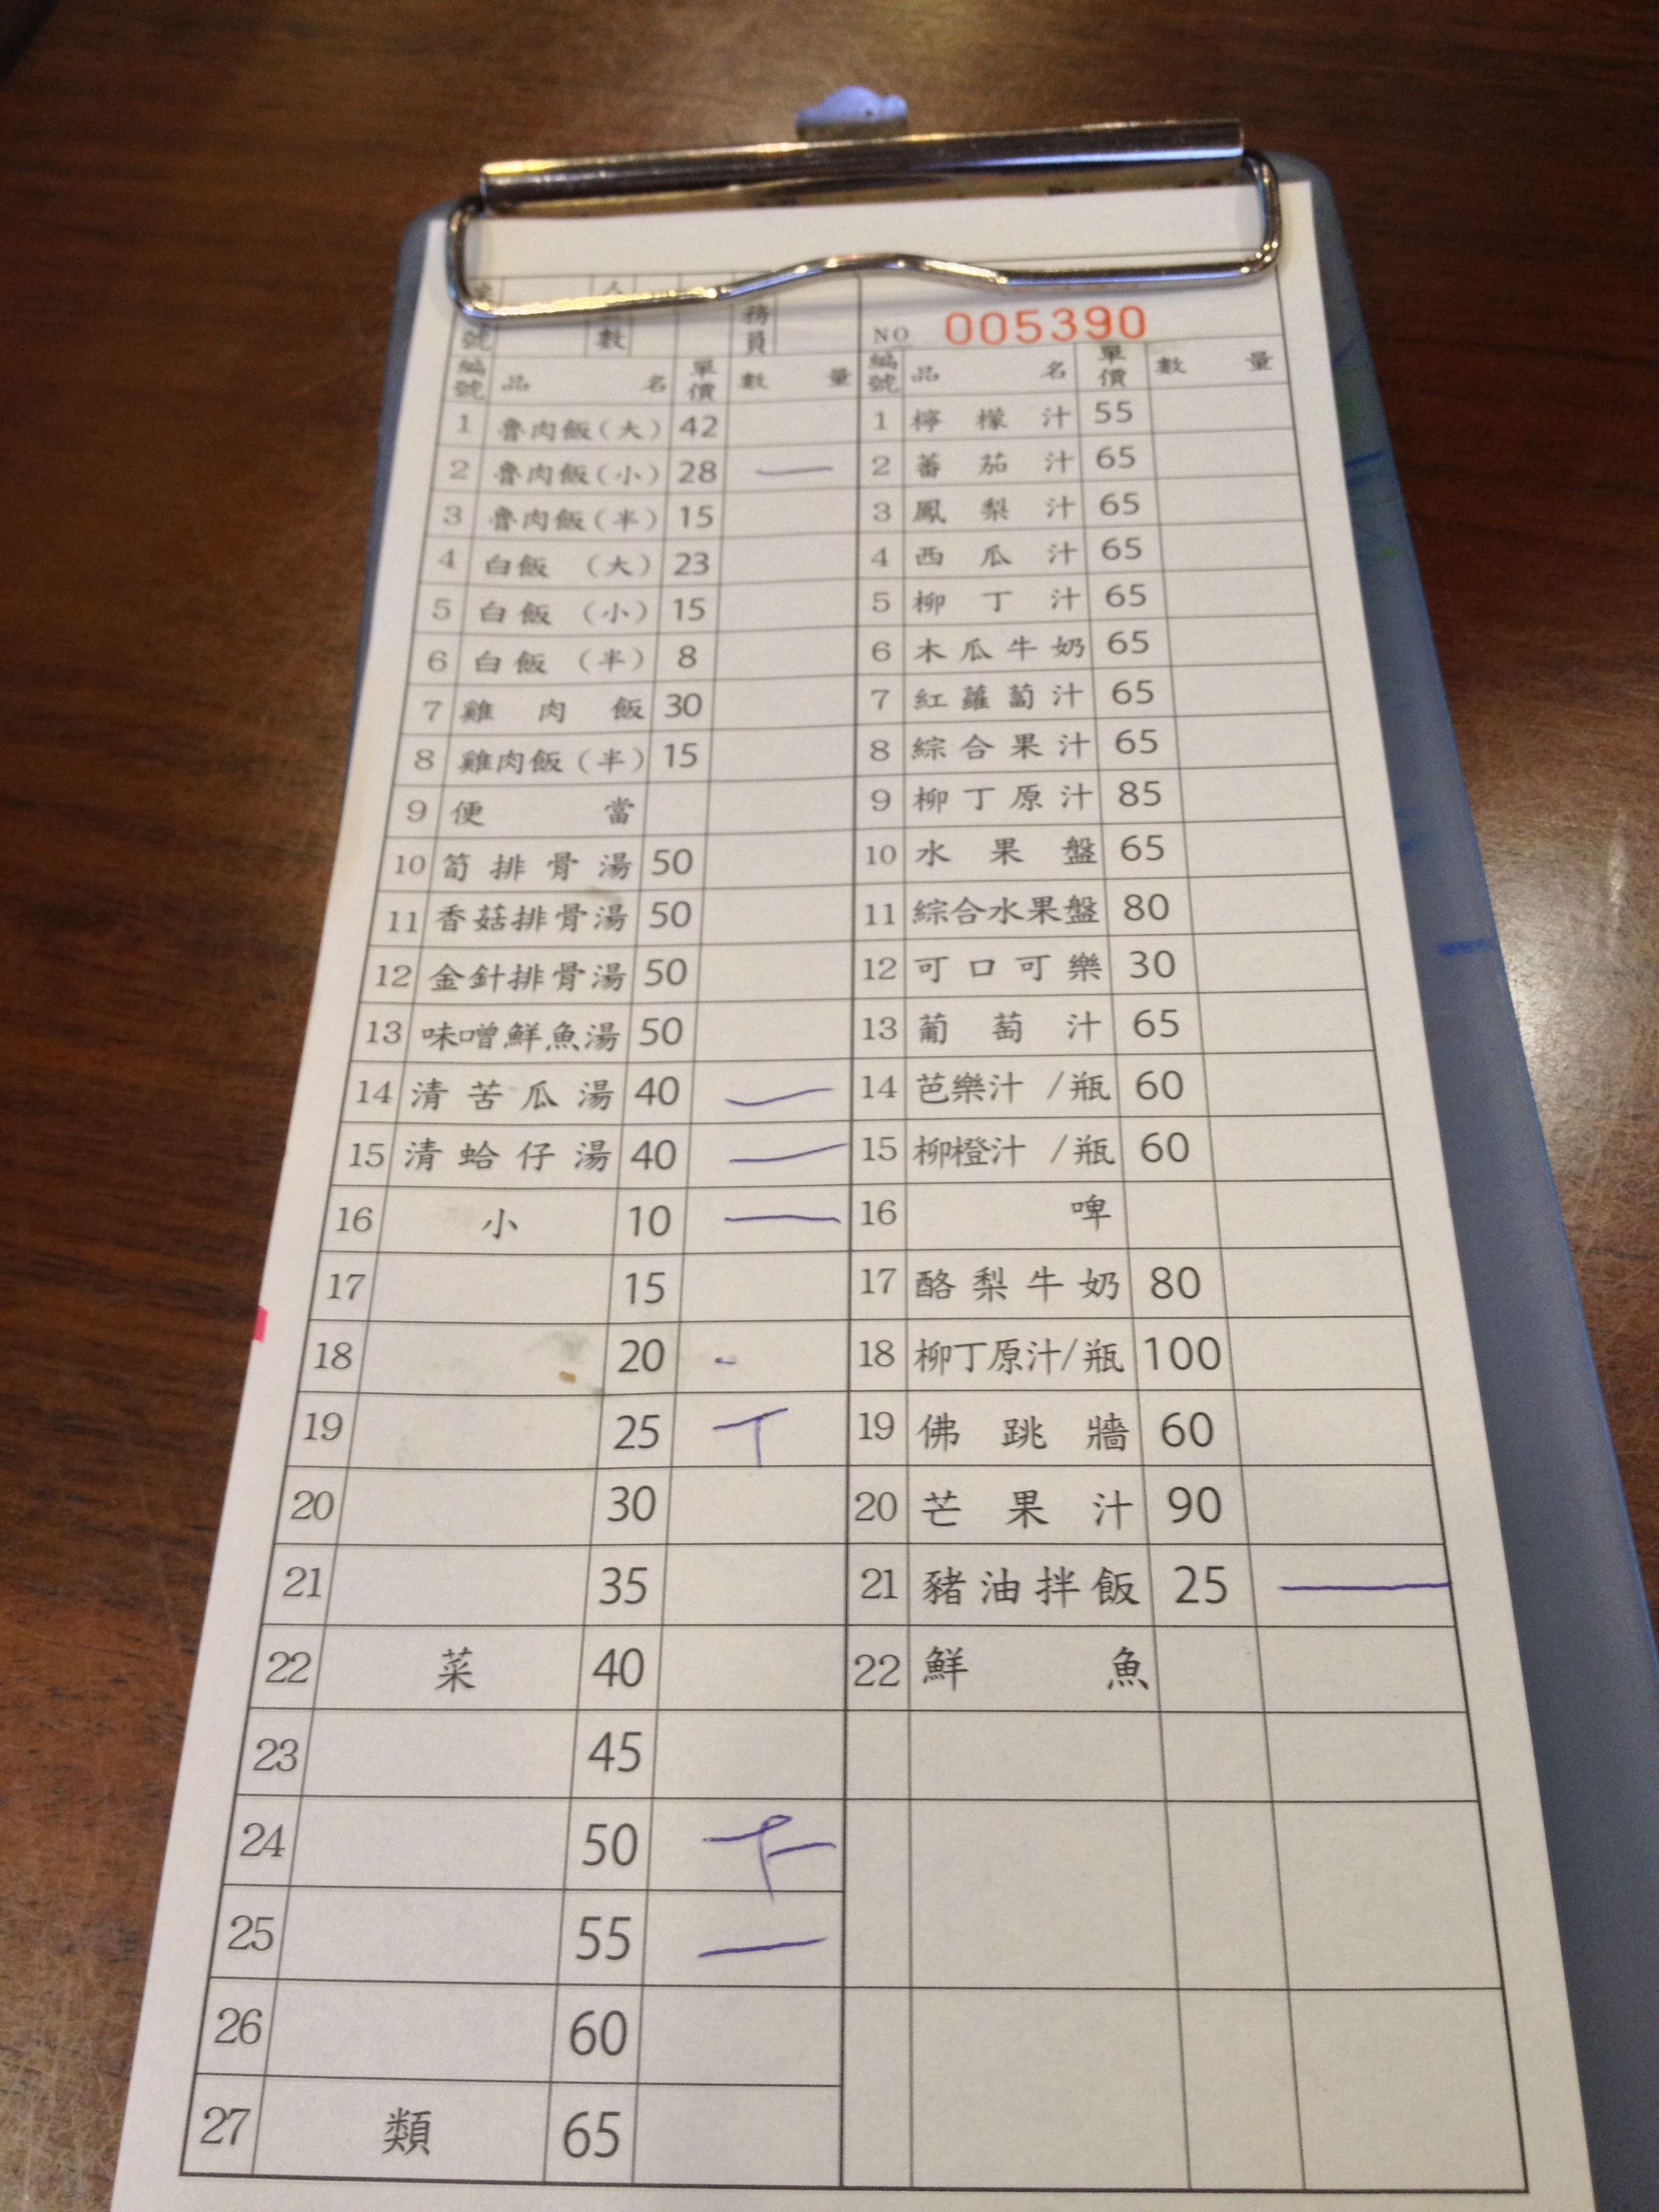 號 數 務員 NO 005390
編號 品名 單價 數量 編號 品名 單價 數量
1 魯肉飯(大) 42 1 檸檬汁 55
2 魯肉飯(小) 28 一 2 蕃茄汁 65
3 魯肉飯(半) 15 3 鳳梨汁 65
4 白飯(大) 23 4 西瓜汁 65
5 白飯(小) 15 5 柳丁汁 65
6 白飯(半) 8 6 木瓜牛奶 65
7 雞肉飯 30 7 紅蘿蔔汁 65
8 雞肉飯(半) 15 8 綜合果汁 65
9 便當 9 柳丁原汁 85
10 筍排骨湯 50 10 水果盤 65
11 香菇排骨湯 50 11 綜合水果盤 80
12 金針排骨湯 50 12 可口可樂 30
13 味噌鮮魚湯 50 13 葡萄汁 65
14 清苦瓜湯 40 一 14 芭樂汁/瓶 60
15 清蛤仔湯 40 一 15 柳橙汁/瓶 60
16 小 10 一 16 啤
17 15 17 酪梨牛奶 80
18 20 18 柳丁原汁/瓶 100
19 25 丅 19 佛跳牆 60
20 30 20 芒果汁 90
21 35 21 豬油拌飯 25 一
22 菜 40 22 鮮魚
23 45
24 50 下
25 55 一
26 60
27 類 65